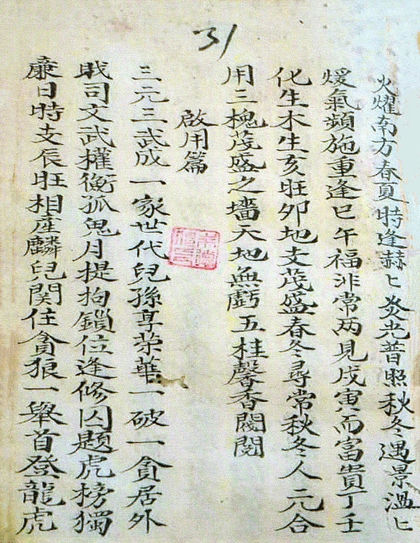 31
火耀南方春夏時逢赫匕炎光普照秋冬遇景溫匕
煖氣頻施重逢巳午福非常兩見戌寅而富貴丁壬
化生木生亥旺卯地支茂盛春冬尋常秋冬人元合
用三槐茂盛之墻天地無虧五桂馨香閥閱
啟用篇
三元三武成一家世代兒孫享荣華一破一貪居外
戝司文武權衡孤鬼月提拘鎖位逢修囚題虎榜獨
廉日時支辰旺相產麟兒関住貪狼一舉首登龍虎